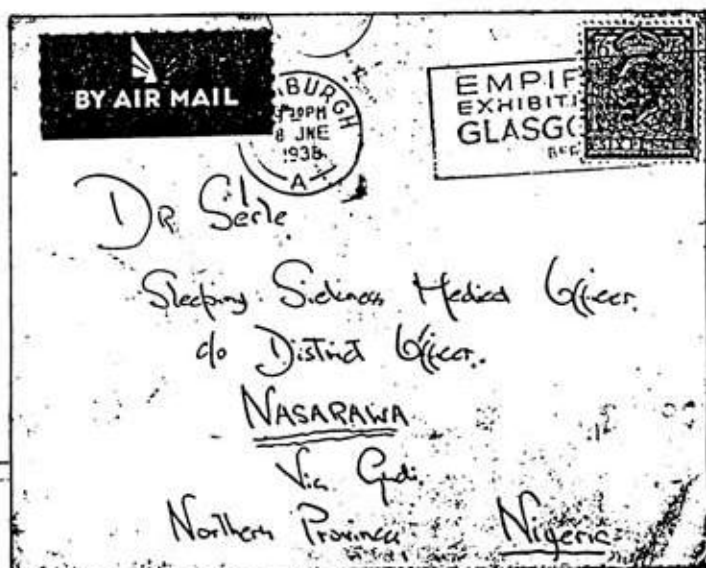 BY AIR MAIL
BURGH
PM
8 JNE
1938
A
EMPI
EXHIBIT
GLASG
Dr Serle
Sleeping Sickness Medical Officer.
c/o District Officer.
NASARAWA
Via Gudi.
Northern Province
Nigeria